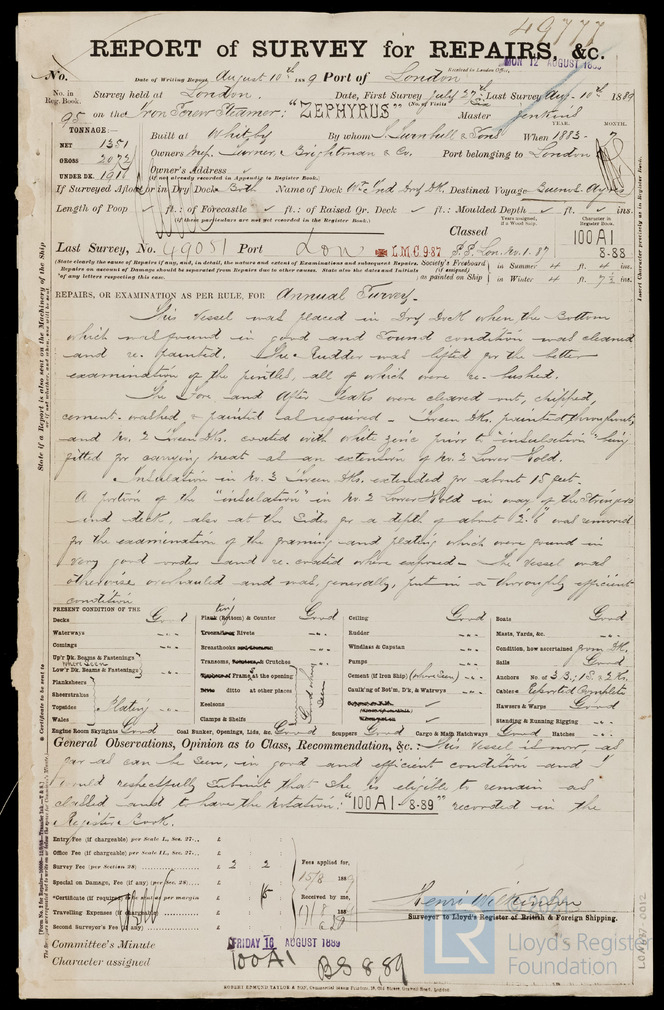 49777
REPORT of SURVEY for REPAIRS, &c.
MON 12 AUGUST 1889
No.
Date of Writing Report, August 10th 1889 Port of London
Received at London Office,
No. in Reg. Book. Survey held at London. Date, First Survey July 27th Last Survey Aug. 10th 1889
(No. of Visits
95 on the Iron Screw Steamer: "ZEPHYRUS" Master Jenkins
YEAR. MONTH.
TONNAGE:—
NET 1351
GROSS 2073
UNDER DK. 1918
Built at Whitby By whom T. Turnbull & Sons When 1883 - 7
Owners Mess. Turner, Brightman & Co. Port belonging to London
Owner's Address
(If not already recorded in Appendix to Register Book.)
If Surveyed Afloat or in Dry Dock Both Name of Dock W. Ind Dry Dk. Destined Voyage Buenos Ayres
Length of Poop ft.: of Forecastle ft.: of Raised Qr. Deck ft.: Moulded Depth ft. ins.
(If these particulars are not recorded in the Register Book.)
Classed
Character in Register Book.
100A1
8-88
Last Survey, No. 49051 Port Lon L.M.C. 9.87 S.S. Lon. No. 1-87
(State clearly the cause of Repairs if any, and, in detail, the nature and extent of Examinations and subsequent Repairs.
Repairs on account of Damage should be separated from Repairs due to other causes. State also the dates and Initials
of any letters respecting this case.
Society's Freeboard (if assigned) as painted on Ship
in Summer 4 ft. 4 ins.
in Winter 4 ft. 7½ ins.
REPAIRS, OR EXAMINATION AS PER RULE, FOR Annual Survey.
This Vessel was placed in Dry Dock when the Bottom
which was found in good and sound condition was cleaned
and re-painted. The Rudder was lifted for the better
examination of the pintles, all of which were re-bushed.
The Fore and After Peaks were cleared out, chipped,
cement-washed & painted as required - 'Tween Dks. painted throughout,
and No. 2 'Tween Dks. coated with white zinc prior to "insulation" being
fitted for carrying meat as an extension of No. 2 Lower Hold.
Insulation in No. 3 'Tween Dks. extended for about 15 feet.
A portion of the "insulation" in No. 2 Lower Hold in way of the Stringers
and deck, also at the sides for a depth of about 2'.6" was removed
for the examination of the framing and plating which were found in
very good order and re-coated where exposed - The vessel was
otherwise overhauled and was, generally, put in a thoroughly efficient
condition.
PRESENT CONDITION OF THE
Decks Good
Waterways
Comings
Up'r Dk. Beams & Fastenings
where seen
Low'r Dk. Beams & Fastenings
Planksheers
Sheerstrakes
Topsides Plating
Wales
Engine Room Skylights Good
Planking (Bottom) & Counter Good
Treenails Rivets
Breasthooks
Transoms, Pointers, & Crutches
Frame at the opening
ditto at other places
Keelsons
Clamps & Shelfs
Good where seen
Coal Bunker, Openings, Lids, &c. Good
Ceiling Good
Rudder
Windlass & Capstan
Pumps
Cement (if Iron Ship) (where seen)
Caulking of Bot'm, D'k, & Watrwys
Scuppers Good Cargo & Main Hatchways Good Hatches
Boats Good
Masts, Yards, &c.
Condition, how ascertained from Dk.
Sails Good
Anchors No. of 3 B; 1 S & 2 K.
Cables Reported Complete
Hawsers & Warps Good
Standing & Running Rigging
General Observations, Opinion as to Class, Recommendation, &c.: This Vessel is now, as
far as can be seen, in good and efficient condition and I
would respectfully submit that she is eligible to remain as
classed and to have the Notation: "100A1-8-89" recorded in the
Register Book.
Entry Fee (if chargeable) per Scale I., Sec. 27... £
Office Fee (if chargeable) per Scale II., Sec. 27... £
Survey Fee (per Section 28) £ 2 2
Special on Damage, Fee (if any) (per Sec. 28) £
Certificate (if required) £ 5
Travelling Expenses (if chargeable) £
Second Surveyor's Fee (if any) £
Fees applied for,
15/8 1889
Received by me,
Henri Wilkinson
Surveyor to Lloyd's Register of British & Foreign Shipping.
Committee's Minute FRIDAY 16 AUGUST 1889
Character assigned 100A1 BS 8,89
ROBERT EDMUND TAYLOR & SON, Commercial Steam Printers, 19, Old Street, Goswell Road, London.
State if a Report is also sent on the Machinery of the Ship
LR
Lloyd's Register
Foundation